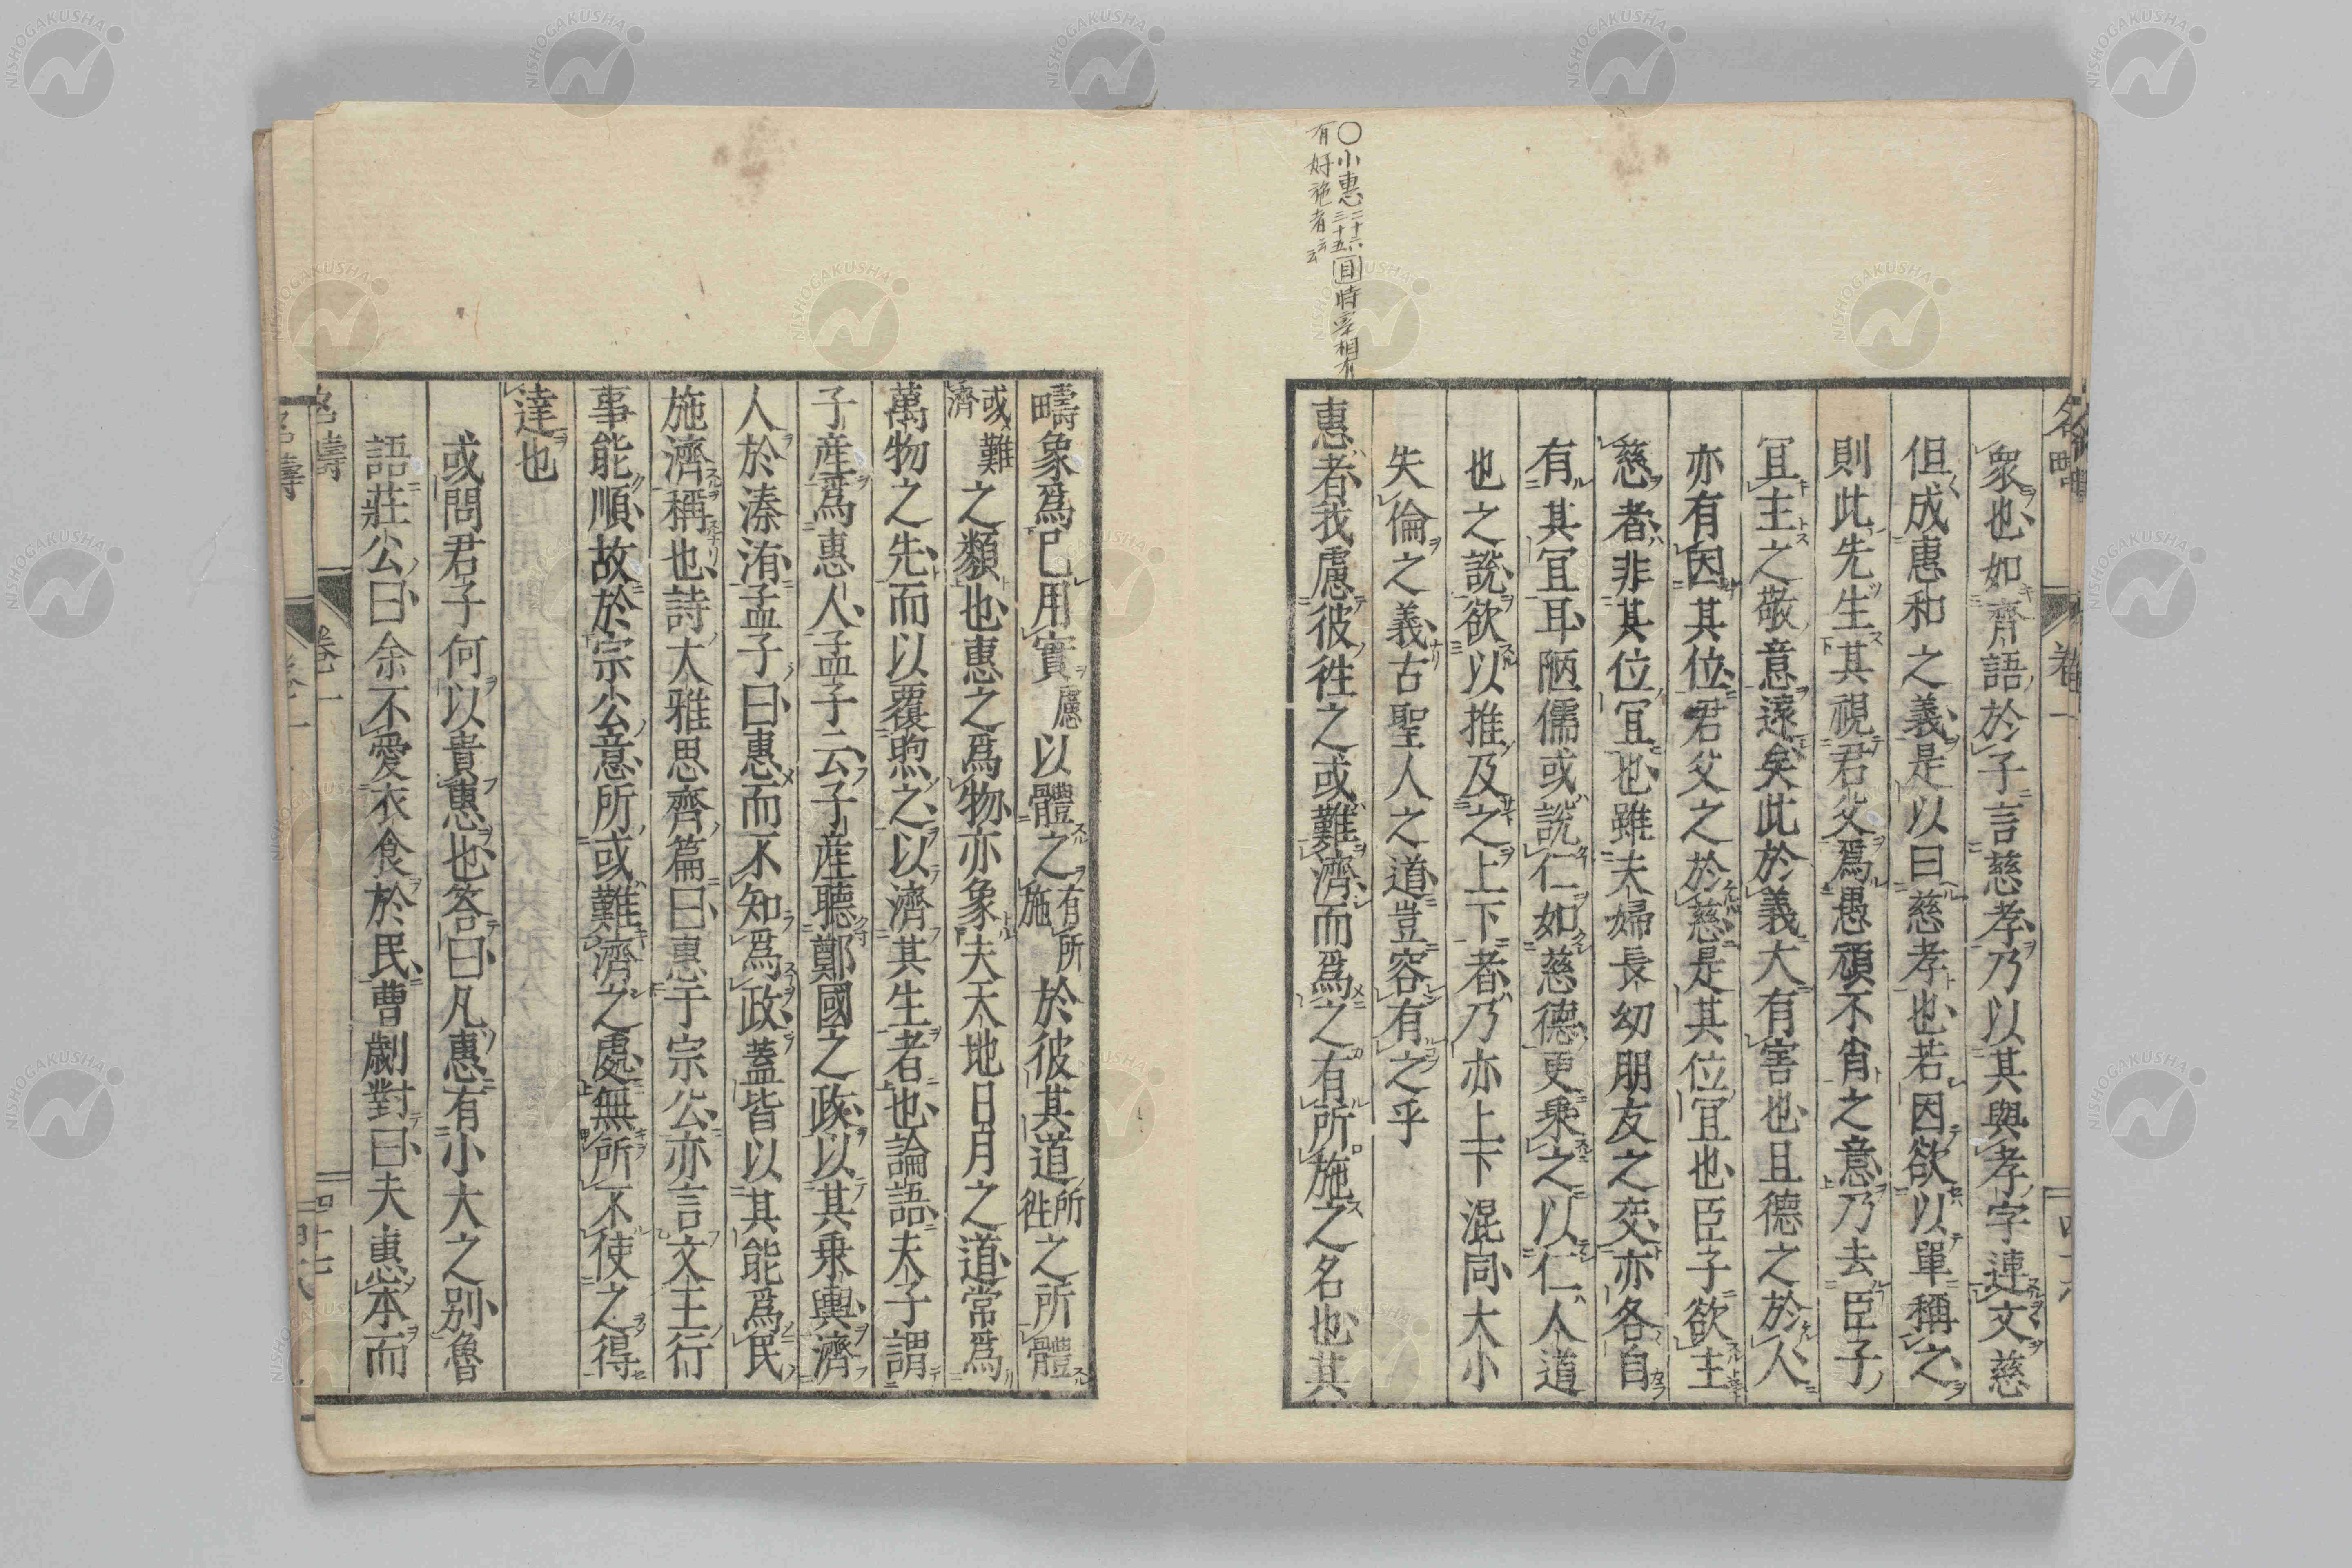 〇小惠二十六三十五囯時宰相有
有好施者云云
衆也如齊語於子言慈孝乃以其與孝字連文慈
但成惠和之義是以曰慈孝也若因欲以單稱之
則此先生其視君父爲愚頑不肖之意乃去臣子
冝主之敬意遠矣此於義大有害也且德之於人
亦有因其位君父之於慈是其位冝也臣子欲主
慈者非其位冝也雖夫婦長幼朋友之交亦各自
有其冝耳陋儒或說仁如慈德更乗之以仁人道
也之說欲以推及之上下者乃亦上下混同大小
失倫之義古聖人之道豈容有之乎
惠者我慮彼徃之或難濟而爲之有所施之名也其
疇象爲已用實慮以體之有所施於彼其道所徃之所體
或難濟之類也惠之爲物亦象夫天地日月之道常爲
萬物之先而以覆煦之以濟其生者也論語夫子謂
子產爲惠人孟子云子產聽鄭國之政以其乗輿濟
人於溱洧孟子曰惠而不知爲政蓋皆以其能爲民
施濟稱也詩大雅思齊篇曰惠于宗公亦言文王行
事能順故於宗公意所或難濟之處無所不使之得
達也
或問君子何以貴惠也答曰凡惠有小大之别魯
語莊公曰余不愛衣食於民曹劌對曰夫惠本而
名疇
卷一
四十七